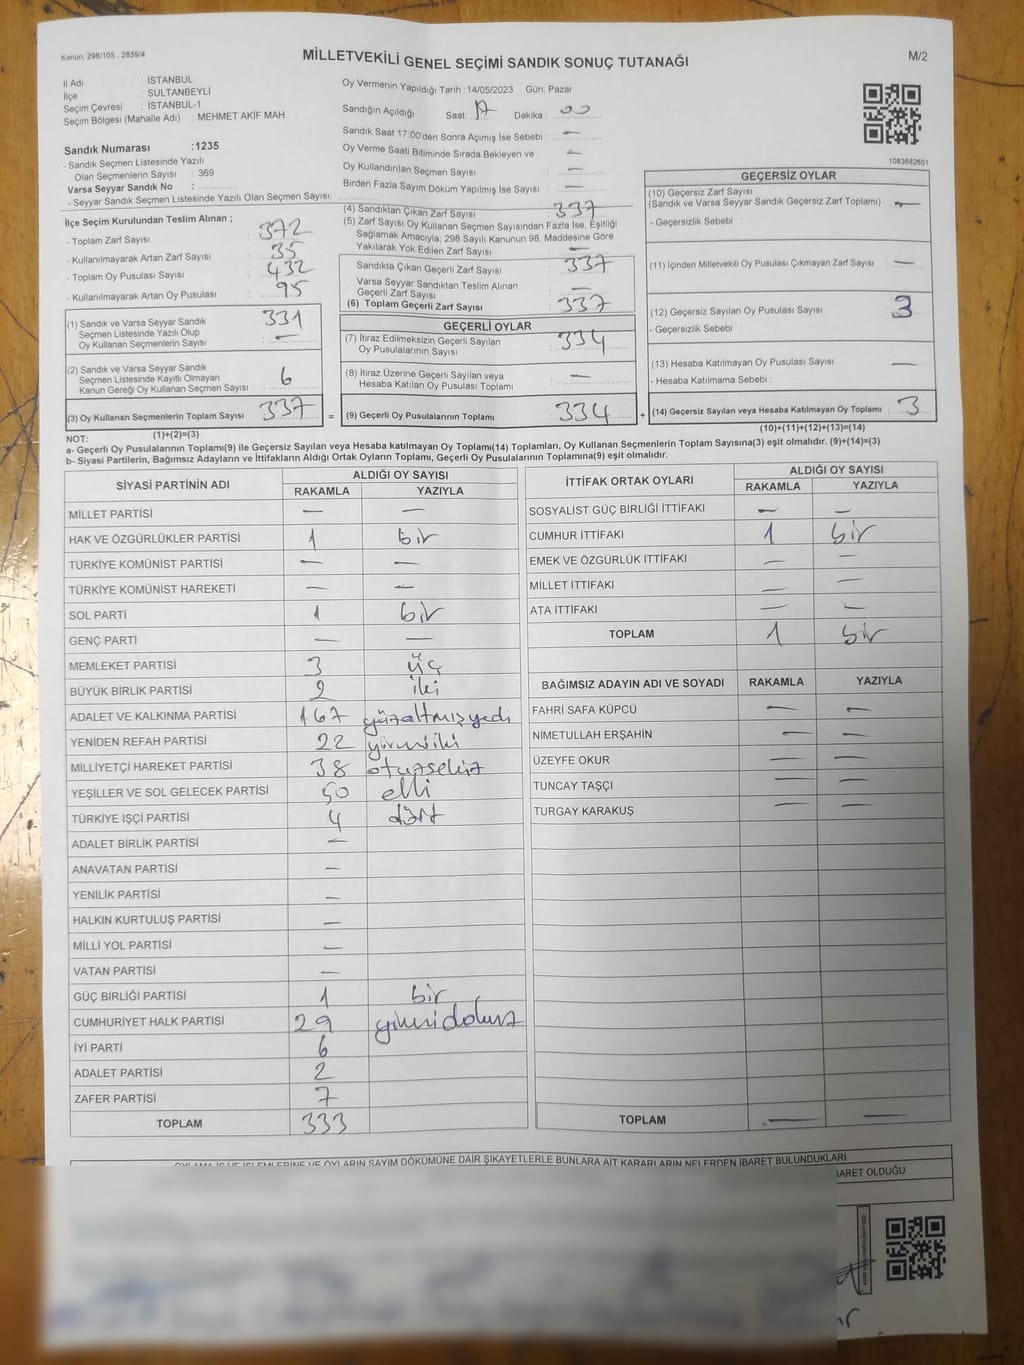 Kanun. 298/105 . 2839/4
MİLLETVEKİLİ GENEL SEÇİMİ SANDIK SONUÇ TUTANAĞI
M/2
İl Adı : İSTANBUL
İlçe : SULTANBEYLİ
Seçim Çevresi : İSTANBUL-1
Seçim Bölgesi (Mahalle Adı) : MEHMET AKİF MAH.
Sandık Numarası :1235
- Sandık Seçmen Listesinde Yazılı
Olan Seçmenlerin Sayısı : 369
Varsa Seyyar Sandık No :
- Seyyar Sandık Seçmen Listesinde Yazılı Olan Seçmen Sayısı:
Oy Vermenin Yapıldığı Tarih :14/05/2023 Gün: Pazar
Sandığın Açıldığı Saat: 17 Dakika : 00
Sandık Saat 17:00'den Sonra Açımış İse Sebebi : —
Oy Verme Saati Bitiminde Sırada Bekleyen ve
Oy Kullandırılan Seçmen Sayısı : —
Birden Fazla Sayım Döküm Yapılmış İse Sayısı : —
1083682601
İlçe Seçim Kurulundan Teslim Alınan ;
- Toplam Zarf Sayısı : 372
- Kullanılmayarak Artan Zarf Sayısı : 35
- Toplam Oy Pusulası Sayısı : 432
- Kullanılmayarak Artan Oy Pusulası : 95
(1) Sandık ve Varsa Seyyar Sandık
Seçmen Listesinde Yazılı Olup
Oy Kullanan Seçmenlerin Sayısı : 331
(2) Sandık ve Varsa Seyyar Sandık
Seçmen Listesinde Kayıtlı Olmayan
Kanun Gereği Oy Kullanan Seçmen Sayısı : 6
(3) Oy Kullanan Seçmenlerin Toplam Sayısı : 337
(1)+(2)=(3)
(4) Sandıktan Çıkan Zarf Sayısı : 337
(5) Zarf Sayısı Oy Kullanan Seçmen Sayısından Fazla İse, Eşitliği
Sağlamak Amacıyla; 298 Sayılı Kanunun 98. Maddesine Göre
Yakılarak Yok Edilen Zarf Sayısı : —
Sandıkta Çıkan Geçerli Zarf Sayısı : 337
Varsa Seyyar Sandıktan Teslim Alınan
Geçerli Zarf Sayısı : —
(6) Toplam Geçerli Zarf Sayısı : 337
GEÇERLİ OYLAR
(7) İtiraz Edilmeksizin Geçerli Sayılan
Oy Pusulalarının Sayısı : 334
(8) İtiraz Üzerine Geçerli Sayılan veya
Hesaba Katılan Oy Pusulası Toplamı : —
= (9) Geçerli Oy Pusulalarının Toplamı : 334
GEÇERSİZ OYLAR
(10) Geçersiz Zarf Sayısı
(Sandık ve Varsa Seyyar Sandık Geçersiz Zarf Toplamı) : —
- Geçersizlik Sebebi :
(11) İçinden Milletvekili Oy Pusulası Çıkmayan Zarf Sayısı : —
(12) Geçersiz Sayılan Oy Pusulası Sayısı : 3
- Geçersizlik Sebebi :
(13) Hesaba Katılmayan Oy Pusulası Sayısı : —
- Hesaba Katılmama Sebebi :
+ (14) Geçersiz Sayılan veya Hesaba Katılmayan Oy Toplamı : 3
(10)+(11)+(12)+(13)=(14)
NOT:
a- Geçerli Oy Pusulalarının Toplamı(9) ile Geçersiz Sayılan veya Hesaba Katılmayan Oy Toplamı(14) Toplamları, Oy Kullanan Seçmenlerin Toplam Sayısına(3) eşit olmalıdır. (9)+(14)=(3)
b- Siyasi Partilerin, Bağımsız Adayların ve İttifakların Aldığı Ortak Oyların Toplamı, Geçerli Oy Pusulalarının Toplamına(9) eşit olmalıdır.
SİYASİ PARTİNİN ADI ALDIĞI OY SAYISI
RAKAMLA YAZIYLA
MİLLET PARTİSİ — —
HAK VE ÖZGÜRLÜKLER PARTİSİ 1 bir
TÜRKİYE KOMÜNİST PARTİSİ — —
TÜRKİYE KOMÜNİST HAREKETİ — —
SOL PARTİ 1 bir
GENÇ PARTİ — —
MEMLEKET PARTİSİ 3 üç
BÜYÜK BİRLİK PARTİSİ 2 iki
ADALET VE KALKINMA PARTİSİ 167 yüzaltmışyedi
YENİDEN REFAH PARTİSİ 22 yirmiiki
MİLLİYETÇİ HAREKET PARTİSİ 38 otuzsekiz
YEŞİLLER VE SOL GELECEK PARTİSİ 50 elli
TÜRKİYE İŞÇİ PARTİSİ 4 dört
ADALET BİRLİK PARTİSİ —
ANAVATAN PARTİSİ —
YENİLİK PARTİSİ —
HALKIN KURTULUŞ PARTİSİ —
MİLLİ YOL PARTİSİ —
VATAN PARTİSİ —
GÜÇ BİRLİĞİ PARTİSİ 1 bir
CUMHURİYET HALK PARTİSİ 29 yirmidokuz
İYİ PARTİ 6
ADALET PARTİSİ 2
ZAFER PARTİSİ 7
TOPLAM 333
İTTİFAK ORTAK OYLARI ALDIĞI OY SAYISI
RAKAMLA YAZIYLA
SOSYALİST GÜÇ BİRLİĞİ İTTİFAKI — —
CUMHUR İTTİFAKI 1 bir
EMEK VE ÖZGÜRLÜK İTTİFAKI — —
MİLLET İTTİFAKI — —
ATA İTTİFAKI — —
TOPLAM 1 bir
BAĞIMSIZ ADAYIN ADI VE SOYADI RAKAMLA YAZIYLA
FAHRİ SAFA KÜPCÜ — —
NİMETULLAH ERŞAHİN — —
ÜZEYFE OKUR — —
TUNCAY TAŞÇI — —
TURGAY KARAKUŞ — —
TOPLAM — —
OYLAMA İŞ VE İŞLEMLERİNE VE OYLARIN SAYIM DÖKÜMÜNE DAİR ŞİKAYETLERLE BUNLARA AİT KARARLARIN NELERDEN İBARET BULUNDUKLARI
İBARET OLDUĞU